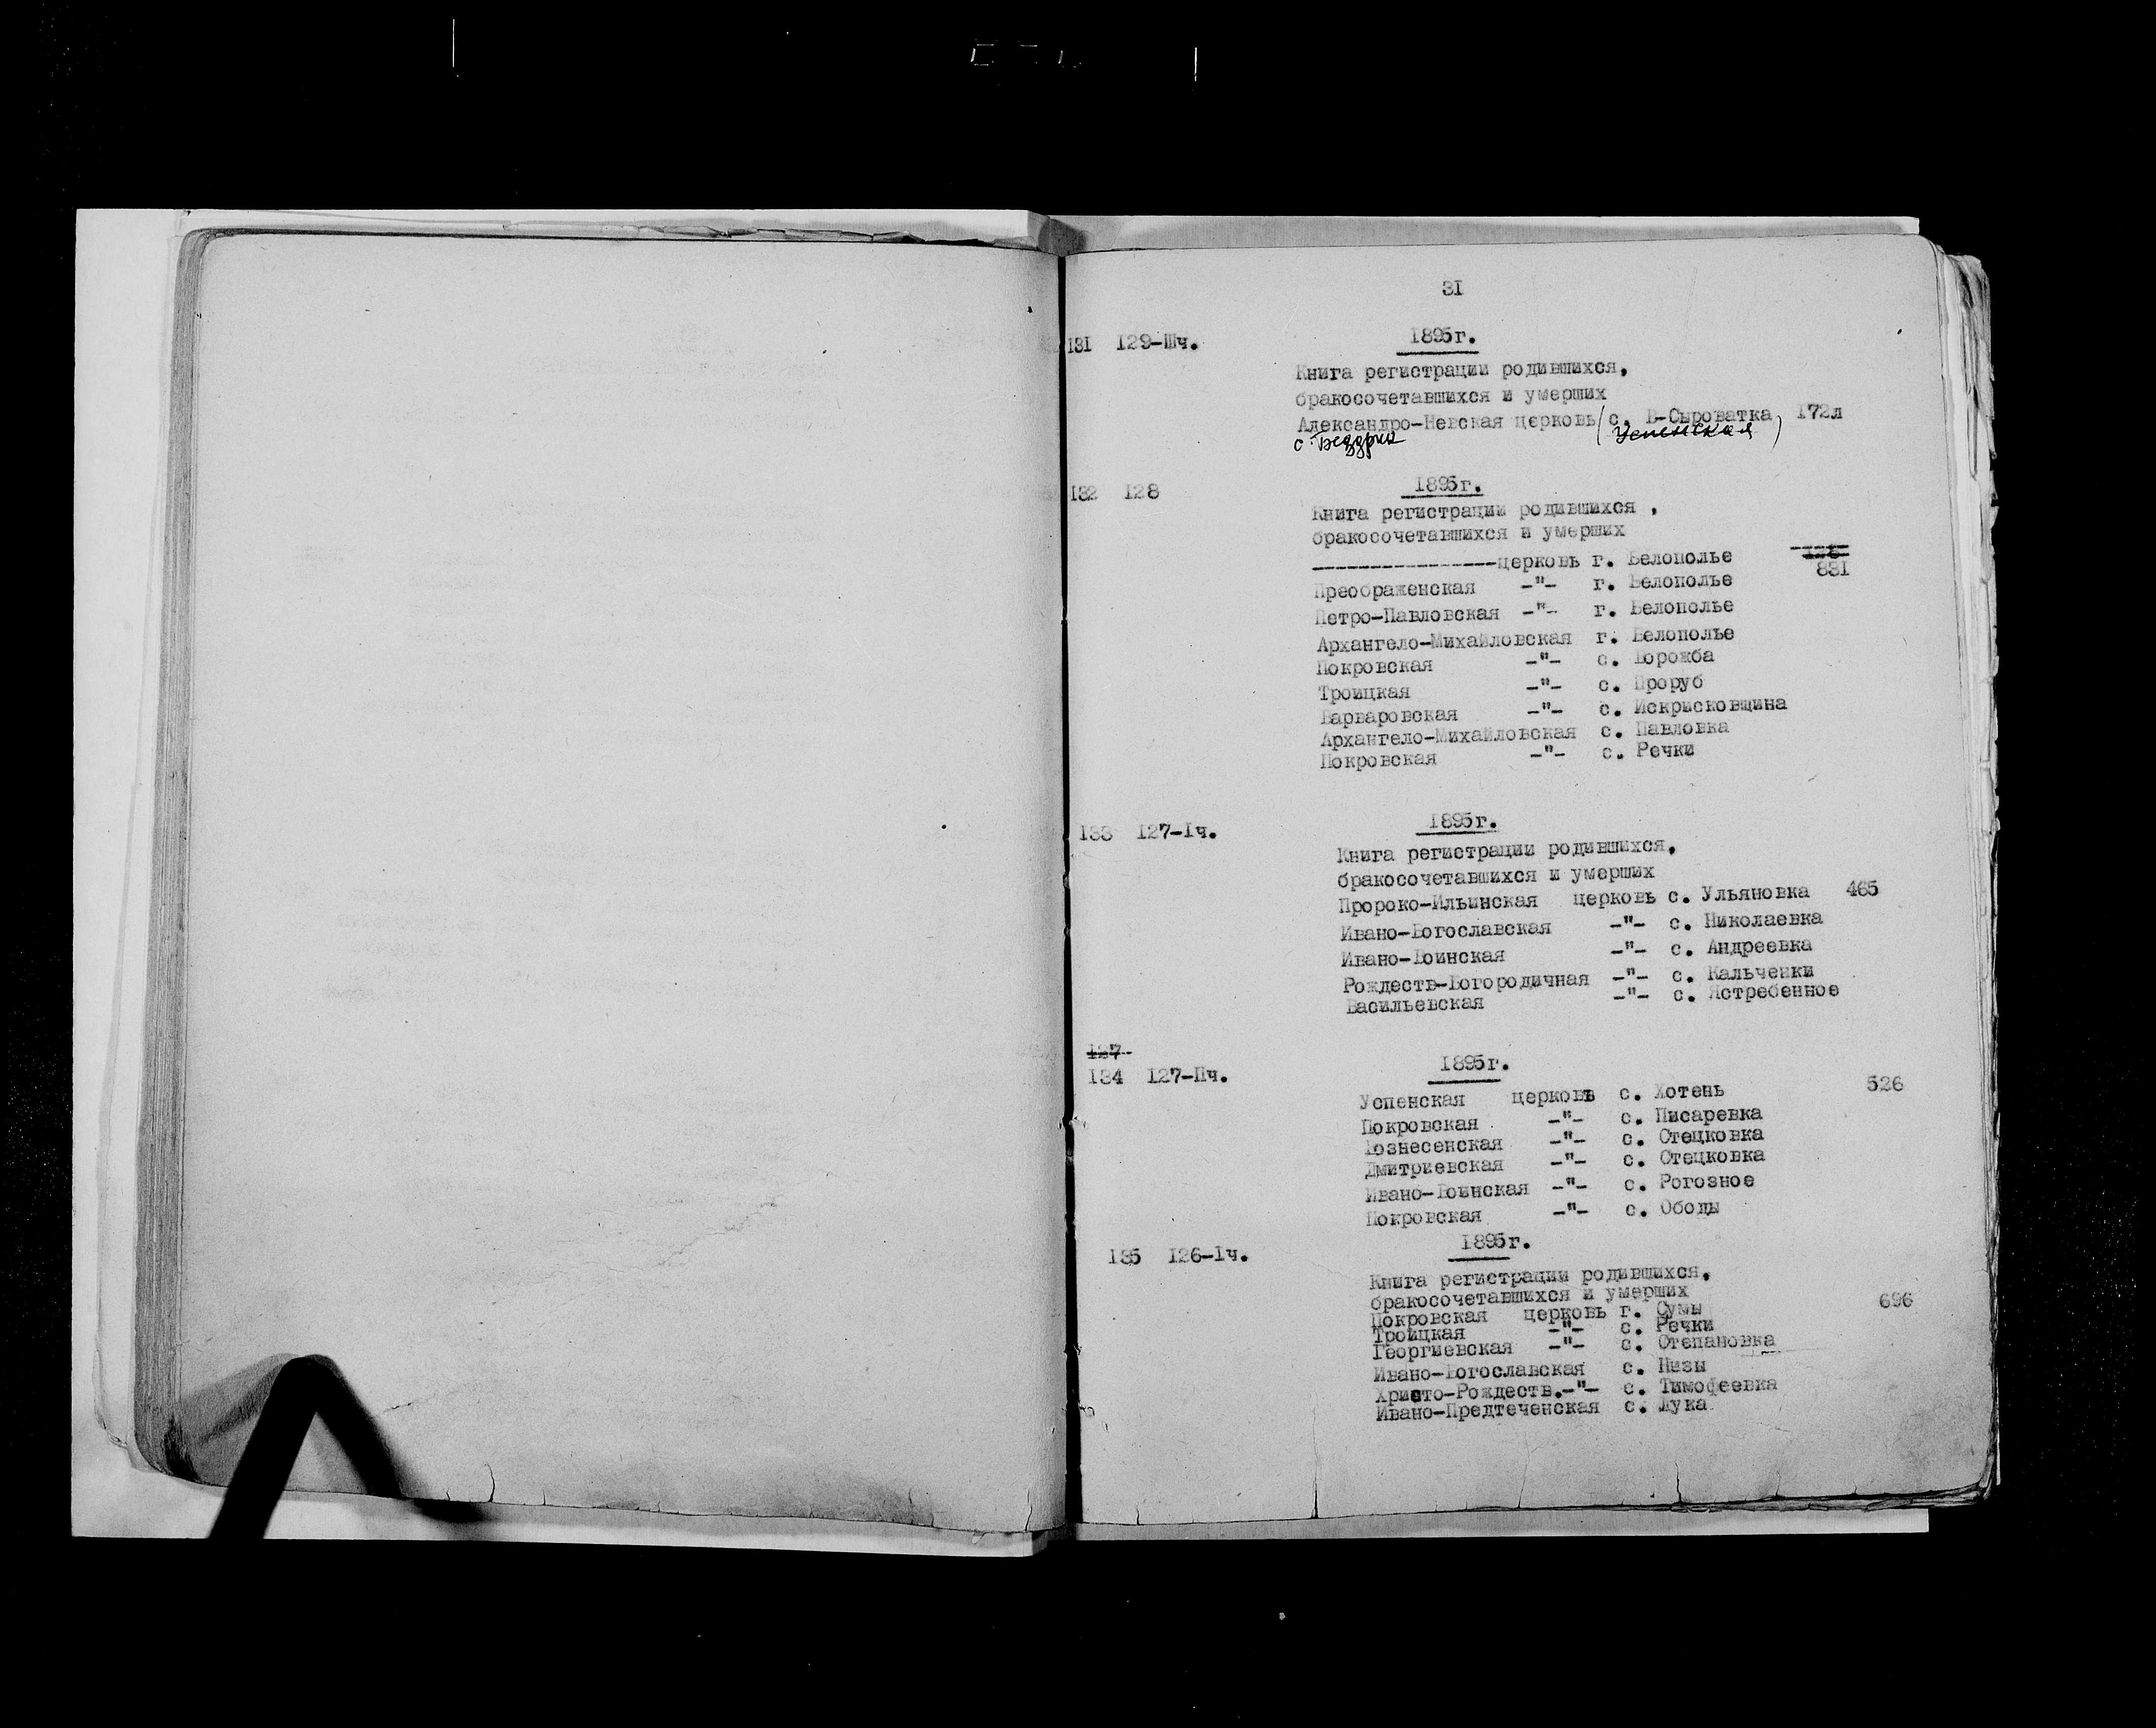 31
131 129-Шч. 1895г.
Книга регистрации родившихся,
бракосочетавшихся и умерших
Александро-Невская церковь (с. В-Сыроватка) 172л
с. Бездрик Успенская
132 128 1895г.
Книга регистрации родившихся ,
бракосочетавшихся и умерших
----------------церковь г. Белополье
831
Преображенская -"- г. Белополье
Петро-Павловская -"- г. Белополье
Архангело-Михайловская г. Белополье
Покровская -"- с. Ворожба
Троицкая -"- с. Проруб
Варваровская -"- с. Искрисковщина
Архангело-Михайловская с. Павловка
Покровская -"- с. Речки
133 127-1ч. 1895г.
Книга регистрации родившихся,
бракосочетавшихся и умерших
Пророко-Ильинская церковь с. Ульяновка 465
Ивано-Богославская -"- с. Николаевка
Ивано-Воинская -"- с. Андреевка
Рождеств-Богородичная -"- с. Кальченки
Васильевская -"- с. Ястребенное
127
134 127-Пч. 1895г.
Успенская церковь с. Хотень 526
Покровская -"- с. Писаревка
Вознесенская -"- с. Стецковка
Дмитриевская -"- с. Стецковка
Ивано-Воинская -"- с. Рогозное
Покровская -"- с. Ободы
135 126-1ч. 1895г.
Книга регистрации родившихся,
бракосочетавшихся и умерших
Покровская церковь г. Сумы 696
Троицкая -"- с. Речки
Георгиевская -"- с. Степановка
Ивано-Богославская с. Низы
Христо-Рождеств.-"- с. Тимофеевка
Ивано-Предтеченская с. Лука